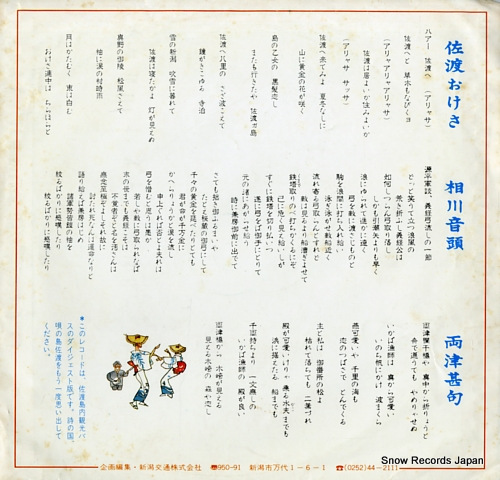 佐渡おけさ
ハアー 佐渡へ (アリャサ)
佐渡へと 草木もなびくヨ
(アリャアリャアリャサ)
佐渡は居よいか住みよいか
(アリャサ サッサ)
佐渡へ来てみよ 夏冬なしに
山に黄金の花が咲く
島の乙女の 黒髪恋し
またも行きたや 佐渡が島
佐渡へ八里の さざ波こえて
鐘がきこゆる 寺泊
雪の新潟 吹雪に暮れて
佐渡は寝たかよ 灯が見えぬ
真野の御陵 松風さえて
袖に涙の村時雨
月はかたむく 東は白む
おけさ連中は ちらほらと
相川音頭
源平軍談 義経弓流しの一節
どっと笑うて立つ浪風の
荒き折ふし義経公は
如何しつらん弓取り落し
しかも引潮矢よりも早く
浪にゆられて遥かに遠く
弓を敵に渡さじものと
駒を浪間に打ち入れ給い
泳ぎ泳がせ敵船近く
流れ寄る弓取らんとすれば
敵は見るより船漕ぎよせて
すでに危く見え給いしが
すぐに熊手を切り払いつ
遂に弓をば御手にとりて
元の渚にあがらせ給う
時に兼房御前に出でて
さても拙き御ふるまいや
たとえ秘蔵の御弓にして
千々の黄金を延べたりとても
君が命が千万金に
かえらりょうかと涙を流し
申上ぐれば否とよ夫れは
弓を惜しむと思うは愚か
末の世までも義経こそは
不覚者ぞと名を汚さんは
語り給えば兼房はじめ
諸軍勢皆鎧の袖を
絞るばかりに感嘆したり
絞るばかりに感嘆したり
両津甚句
両津欄干橋ゃ 真中から折りょうと
舟で通うても やめりゃせぬ
いかば漁師は 真から可愛い
いのち帆にかけ 波まくら
燕可愛いや 千里の海も
恋のつばさで とんでくる
主と私は 御番所の松よ
枯れて落ちても 二葉づれ
殿が可愛いけりゃ 乗る水夫までも
千両持ちより 一文無しの
いかば漁師の 殿が良い
両津橋から 木崎が見える
見える木崎の 森や恋し
*このレコードは、佐渡島内観光バスのダイジェスト版です。詩の国、唄の島佐渡をもう一度思い出してください。
企画編集・新潟交通株式会社 〠950-91 新潟市万代1-6-1 ☎(0252)44-2111
Snow Records Japan